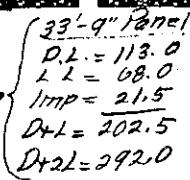 33'-9" Panel
D.L. = 113.0
L L = 68.0
Imp = 21.5
D+L = 202.5
D+2L = 292.0